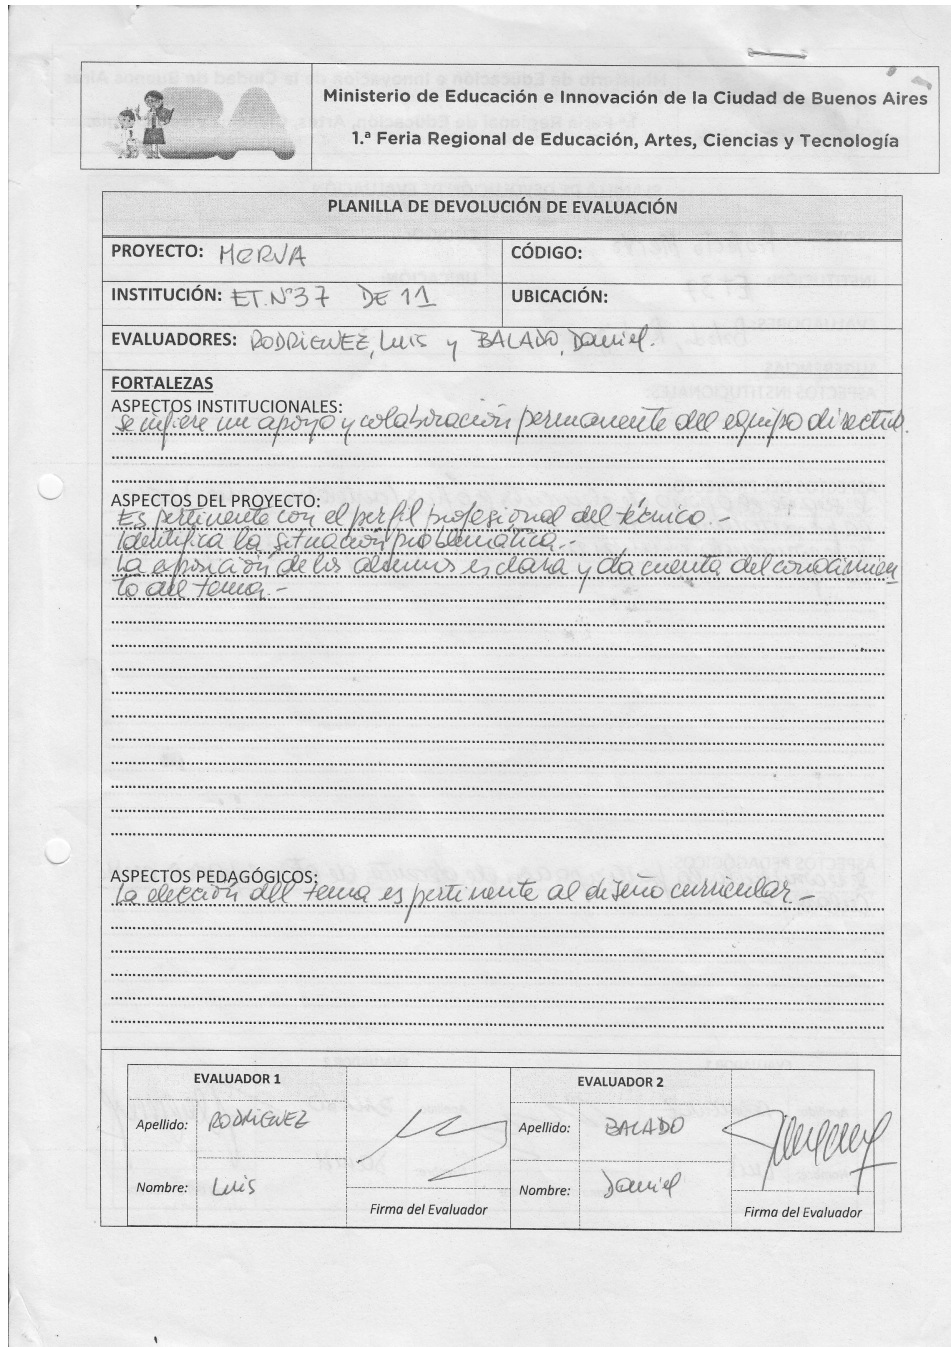 Ministerio de Educación e Innovación de la Ciudad de Buenos Aires
1.ª Feria Regional de Educación, Artes, Ciencias y Tecnología
PLANILLA DE DEVOLUCIÓN DE EVALUACIÓN
PROYECTO: MERVA
CÓDIGO:
INSTITUCIÓN: ET.Nº37 DE 11
UBICACIÓN:
EVALUADORES: RODRIGUEZ, Luis y BALADO, Daniel.
FORTALEZAS
ASPECTOS INSTITUCIONALES:
Se infiere un apoyo y colaboración permanente del equipo directivo.
ASPECTOS DEL PROYECTO:
Es pertinente con el perfil profesional del técnico.-
Identifica la situación problemática.-
La exposición de los alumnos es clara y da cuenta del conocimien
to del tema.-
ASPECTOS PEDAGÓGICOS:
La elección del tema es pertinente al diseño curricular-
EVALUADOR 1
EVALUADOR 2
Apellido: RODRIGUEZ
Apellido: BALADO
Nombre: Luis
Nombre: Daniel
Firma del Evaluador
Firma del Evaluador